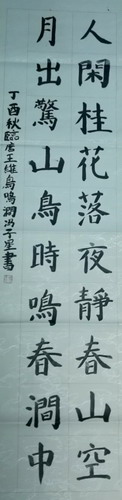 人閑桂花落夜靜春山空
月出驚山鳥時鳴春澗中
丁酉秋臨唐王維鳥鳴澗冯子星書